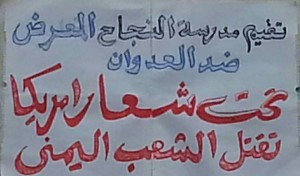 تقيم مدرسة النجاح المعرض
ضد العدوان
تحت شعار امريكا
تقتل الشعب اليمني